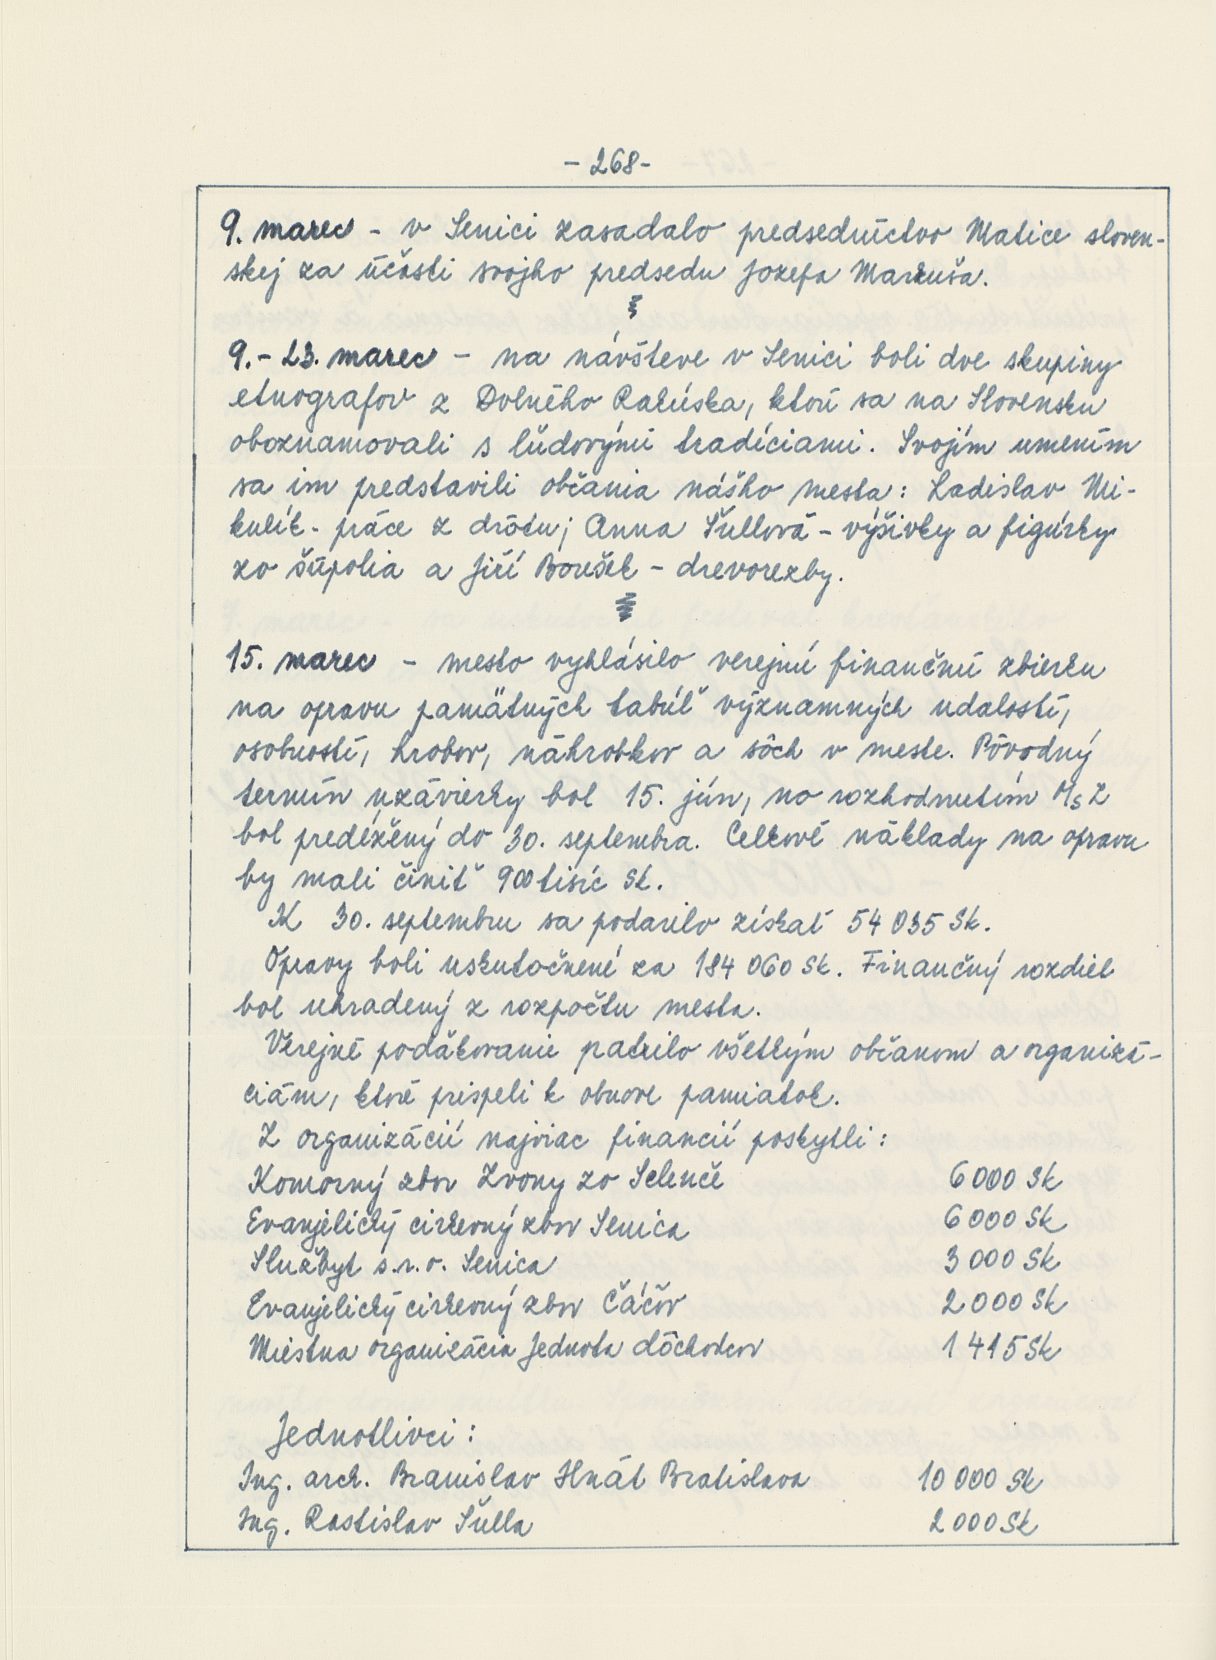 - 268 -
9. marec - v Senici zasadalo predsedníctvo Matice sloven-
skej za účasti svojho predsedu Jozefa Markuša.
9.- 23. marec - na návšteve v Senici boli dve skupiny
etnografov z Dolného Rakúska, ktorí sa na Slovensku
oboznamovali s ľudovými tradíciami. Svojím umením
sa im predstavili občania nášho mesta: Ladislav Mi-
kulík - práce z drôtu; Anna Šullová - výšivky a figúrky
zo šúpolia a Jiří Boušek - drevorezby.
15. marec - mesto vyhlásilo verejnú finančnú zbierku
na opravu pamätných tabúľ významných udalostí,
osobností, hrobov, náhrobkov a sôch v meste. Pôvodný
termín uzávierky bol 15. jún, no rozhodnutím MsZ
bol predĺžený do 30. septembra. Celkové náklady na opravu
by mali činiť 900 tisíc Sk.
K 30. septembru sa podarilo získať 54 035 Sk.
Opravy boli uskutočnené za 184 060 Sk. Finančný rozdiel
bol uhradený z rozpočtu mesta.
Verejné poďakovanie patrilo všetkým občanom a organizá-
ciám, ktoré prispeli k obnove pamiatok.
Z organizácií najviac financií poskytli:
Komorný zbor Zvony zo Selenče 6 000 Sk
Evanjelický cirkevný zbor Senica 6 000 Sk
Službyt s.r.o. Senica 3 000 Sk
Evanjelický cirkevný zbor Čáčov 2 000 Sk
Miestna organizácia Jednota dôchodcov 1 415 Sk
Jednotlivci:
Ing. arch. Branislav Hnát Bratislava 10 000 Sk
Ing. Rastislav Šulla 2 000 Sk